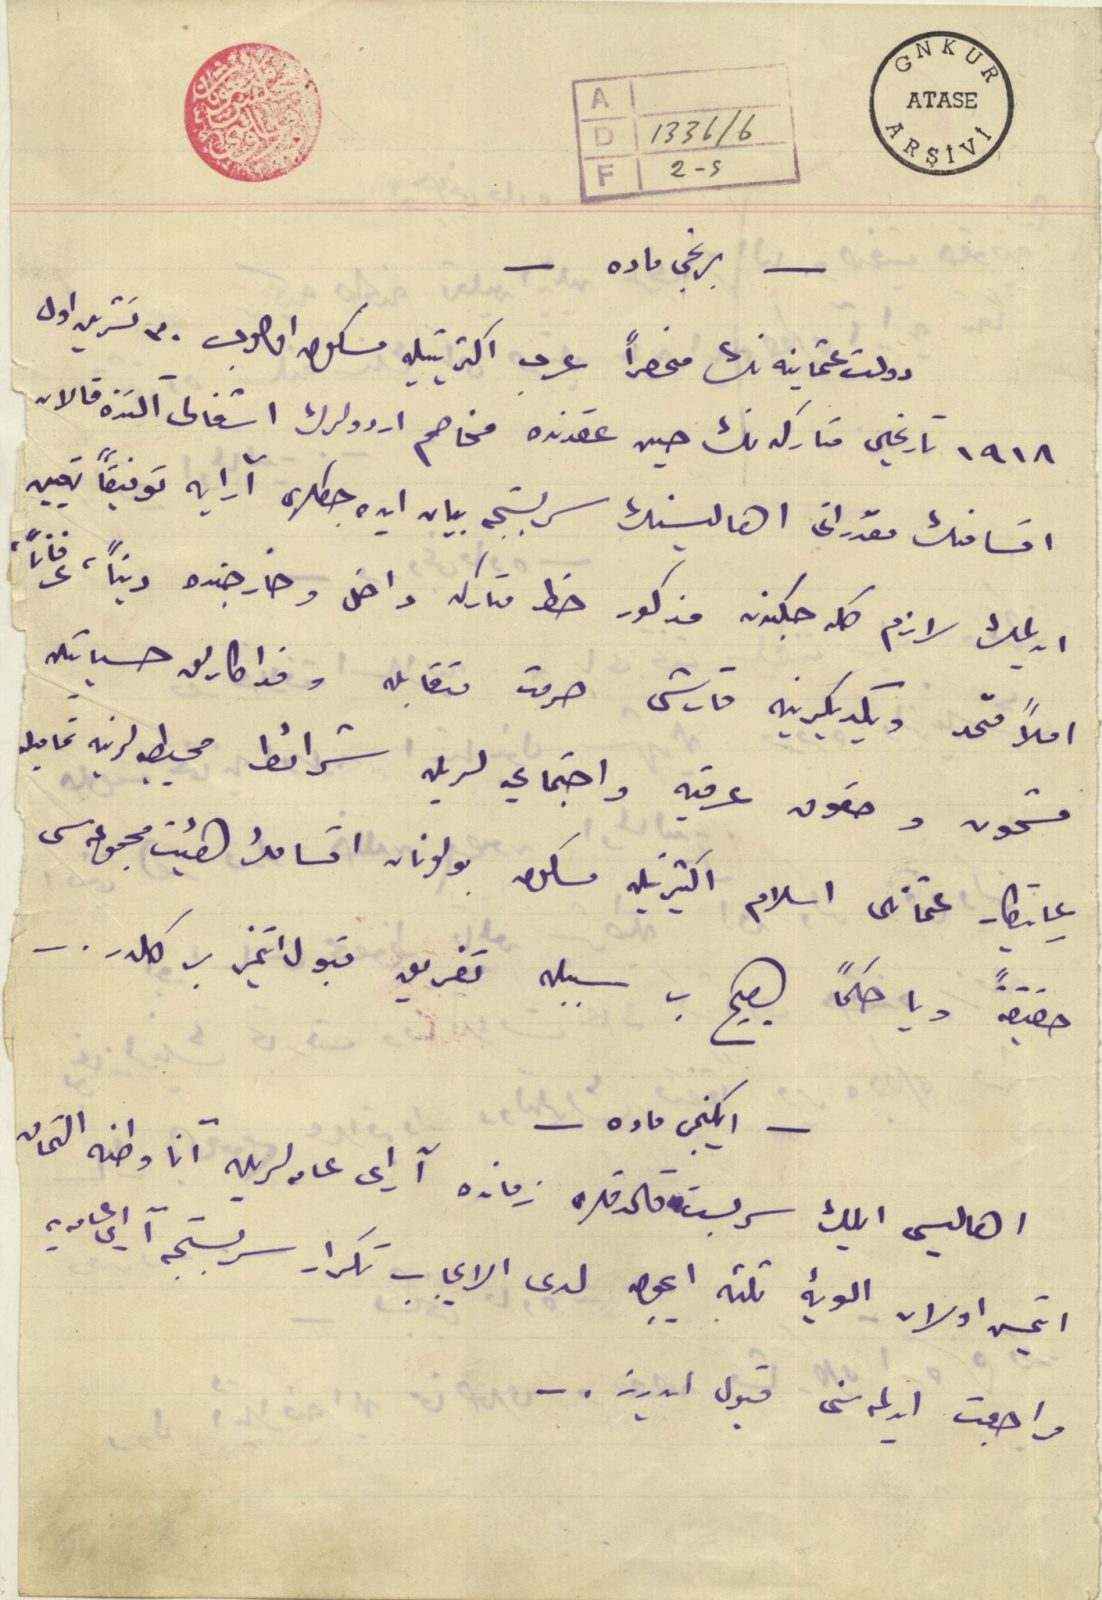 GNKUR
ATASE
ARŞİVİ
A
D 1336/6
F 2-5
— برنجی ماده —
دولت عثمانیه نك منحصراً عرب اكثریتیله مسكون اولوب ۳۰ تشرین اول
۱۹۱۸ تاریخلی متاركه نك حین عقدنده مخاصم اردولرك اشغالی آلتنده قالان
اقسامنك مقدراتی اهالیسنك سربستجه بیان ایده جكلری آرایه توفیقاً تعیین
ایدلمك لازم كله جكندن مذكور خط متاركه داخل و خارجنده دیناً، عرفاناً،
املاً متحد ویكدیگرینه قارشی حرمت متقابله و فداكارلق حسیاتیله
مشحون و حقوق عرقیه واجتماعیه لریله شرائط محیطیه لرینه تمامیله
رعایتكار عثمانلی اسلام اكثریتیله مسكون بولونان اقسامك هیئت مجموعه سی
حقیقةً ویا حكماً هیچ بر سببله تفریق قبول ایتمز بر كلدر . —
— ایكنجی ماده —
اهالیسی ایلك سربست قالدقلری زمانده آرای عامه لریله آنا وطنه التحاق
ایتمیش اولان الویهٔ ثلثه ایچون لدی الایجاب تكرار سربستجه آرای عامه یه
مراجعت ایدلمه سنی قبول ایدرز . —